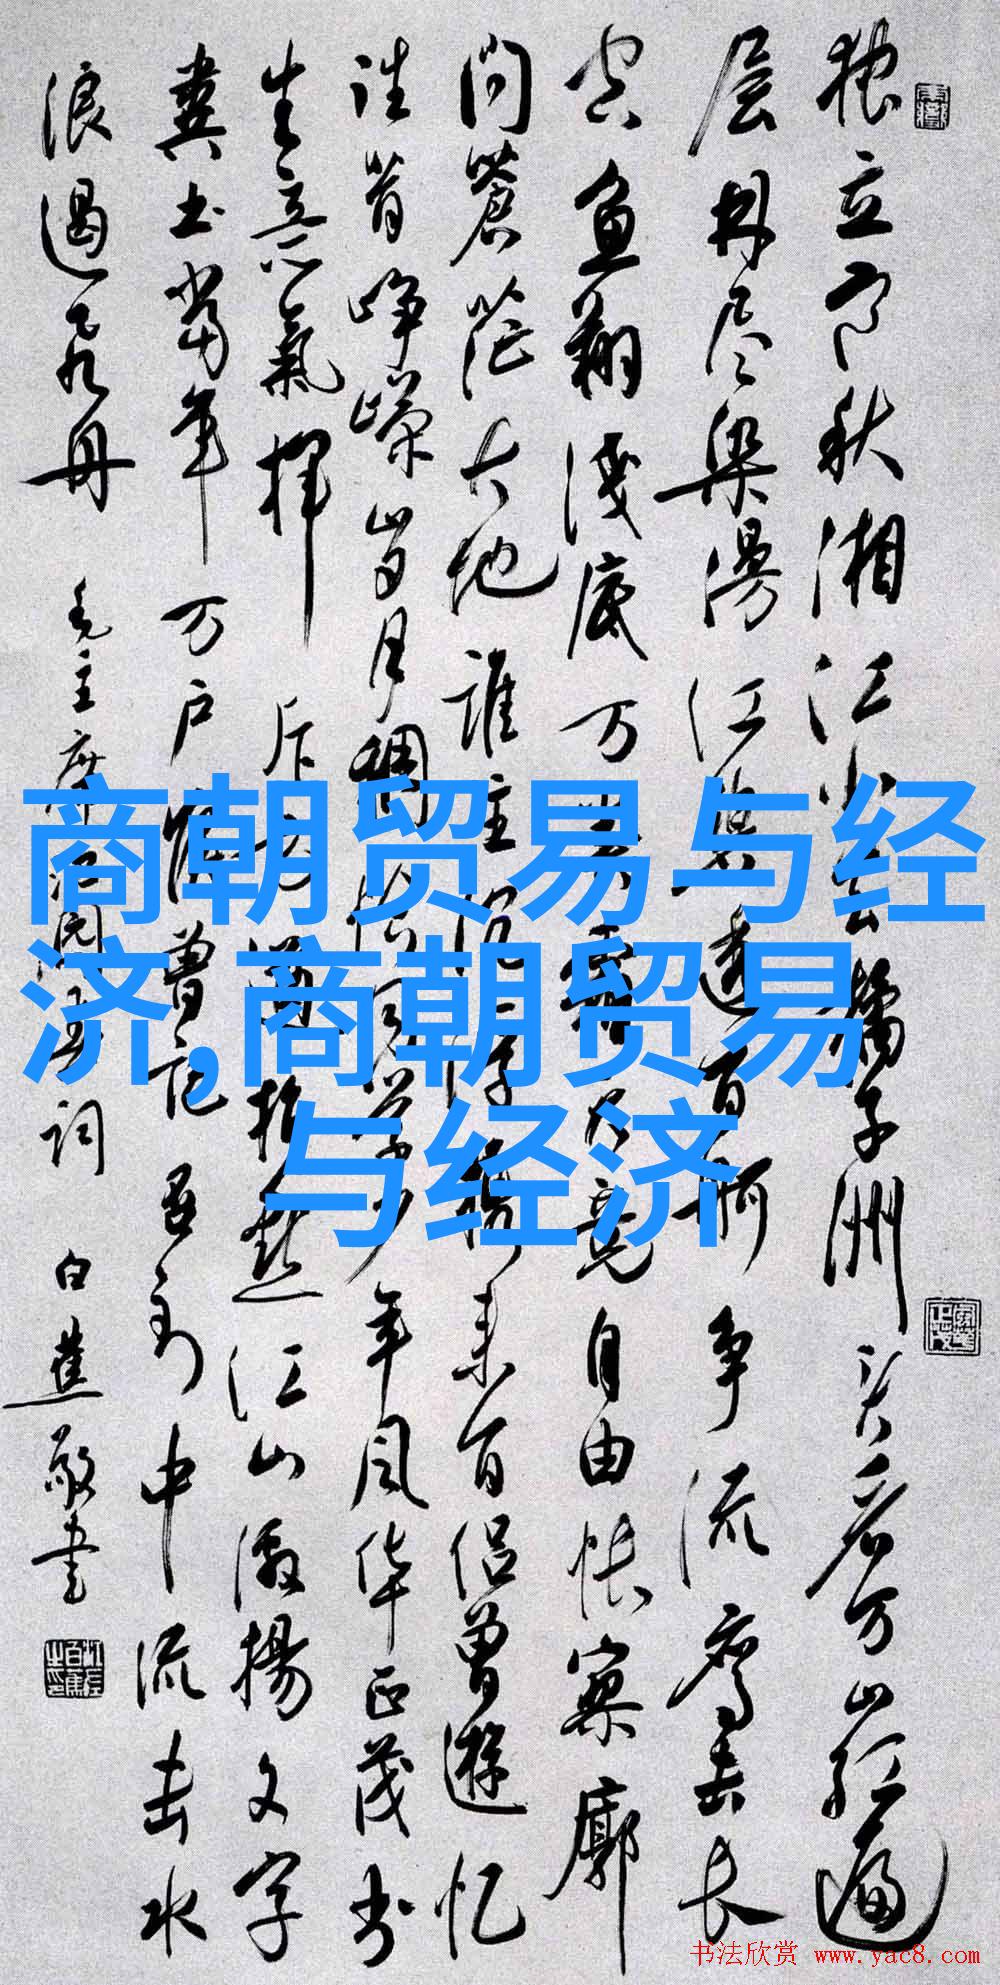 独立寒秋湘江北去橘子洲头看万山红遍
层林尽染漫江碧透百舸争流鹰击长
空鱼翔浅底万类霜天竞自由怅寥廓
问蒼茫大地谁主沉浮携来百侣曾遊忆
往昔峥嵘岁月稠恰同学少年风华正茂书
生意氣挥斥方遒指点江山激揚文字
粪土当年万户侯曾记否到中流击水
浪遏飞舟 毛主席沁园春词 白蕉敬書
商朝贸易与经
济,商朝贸易
与经济
书法欣赏 www.yac8.com